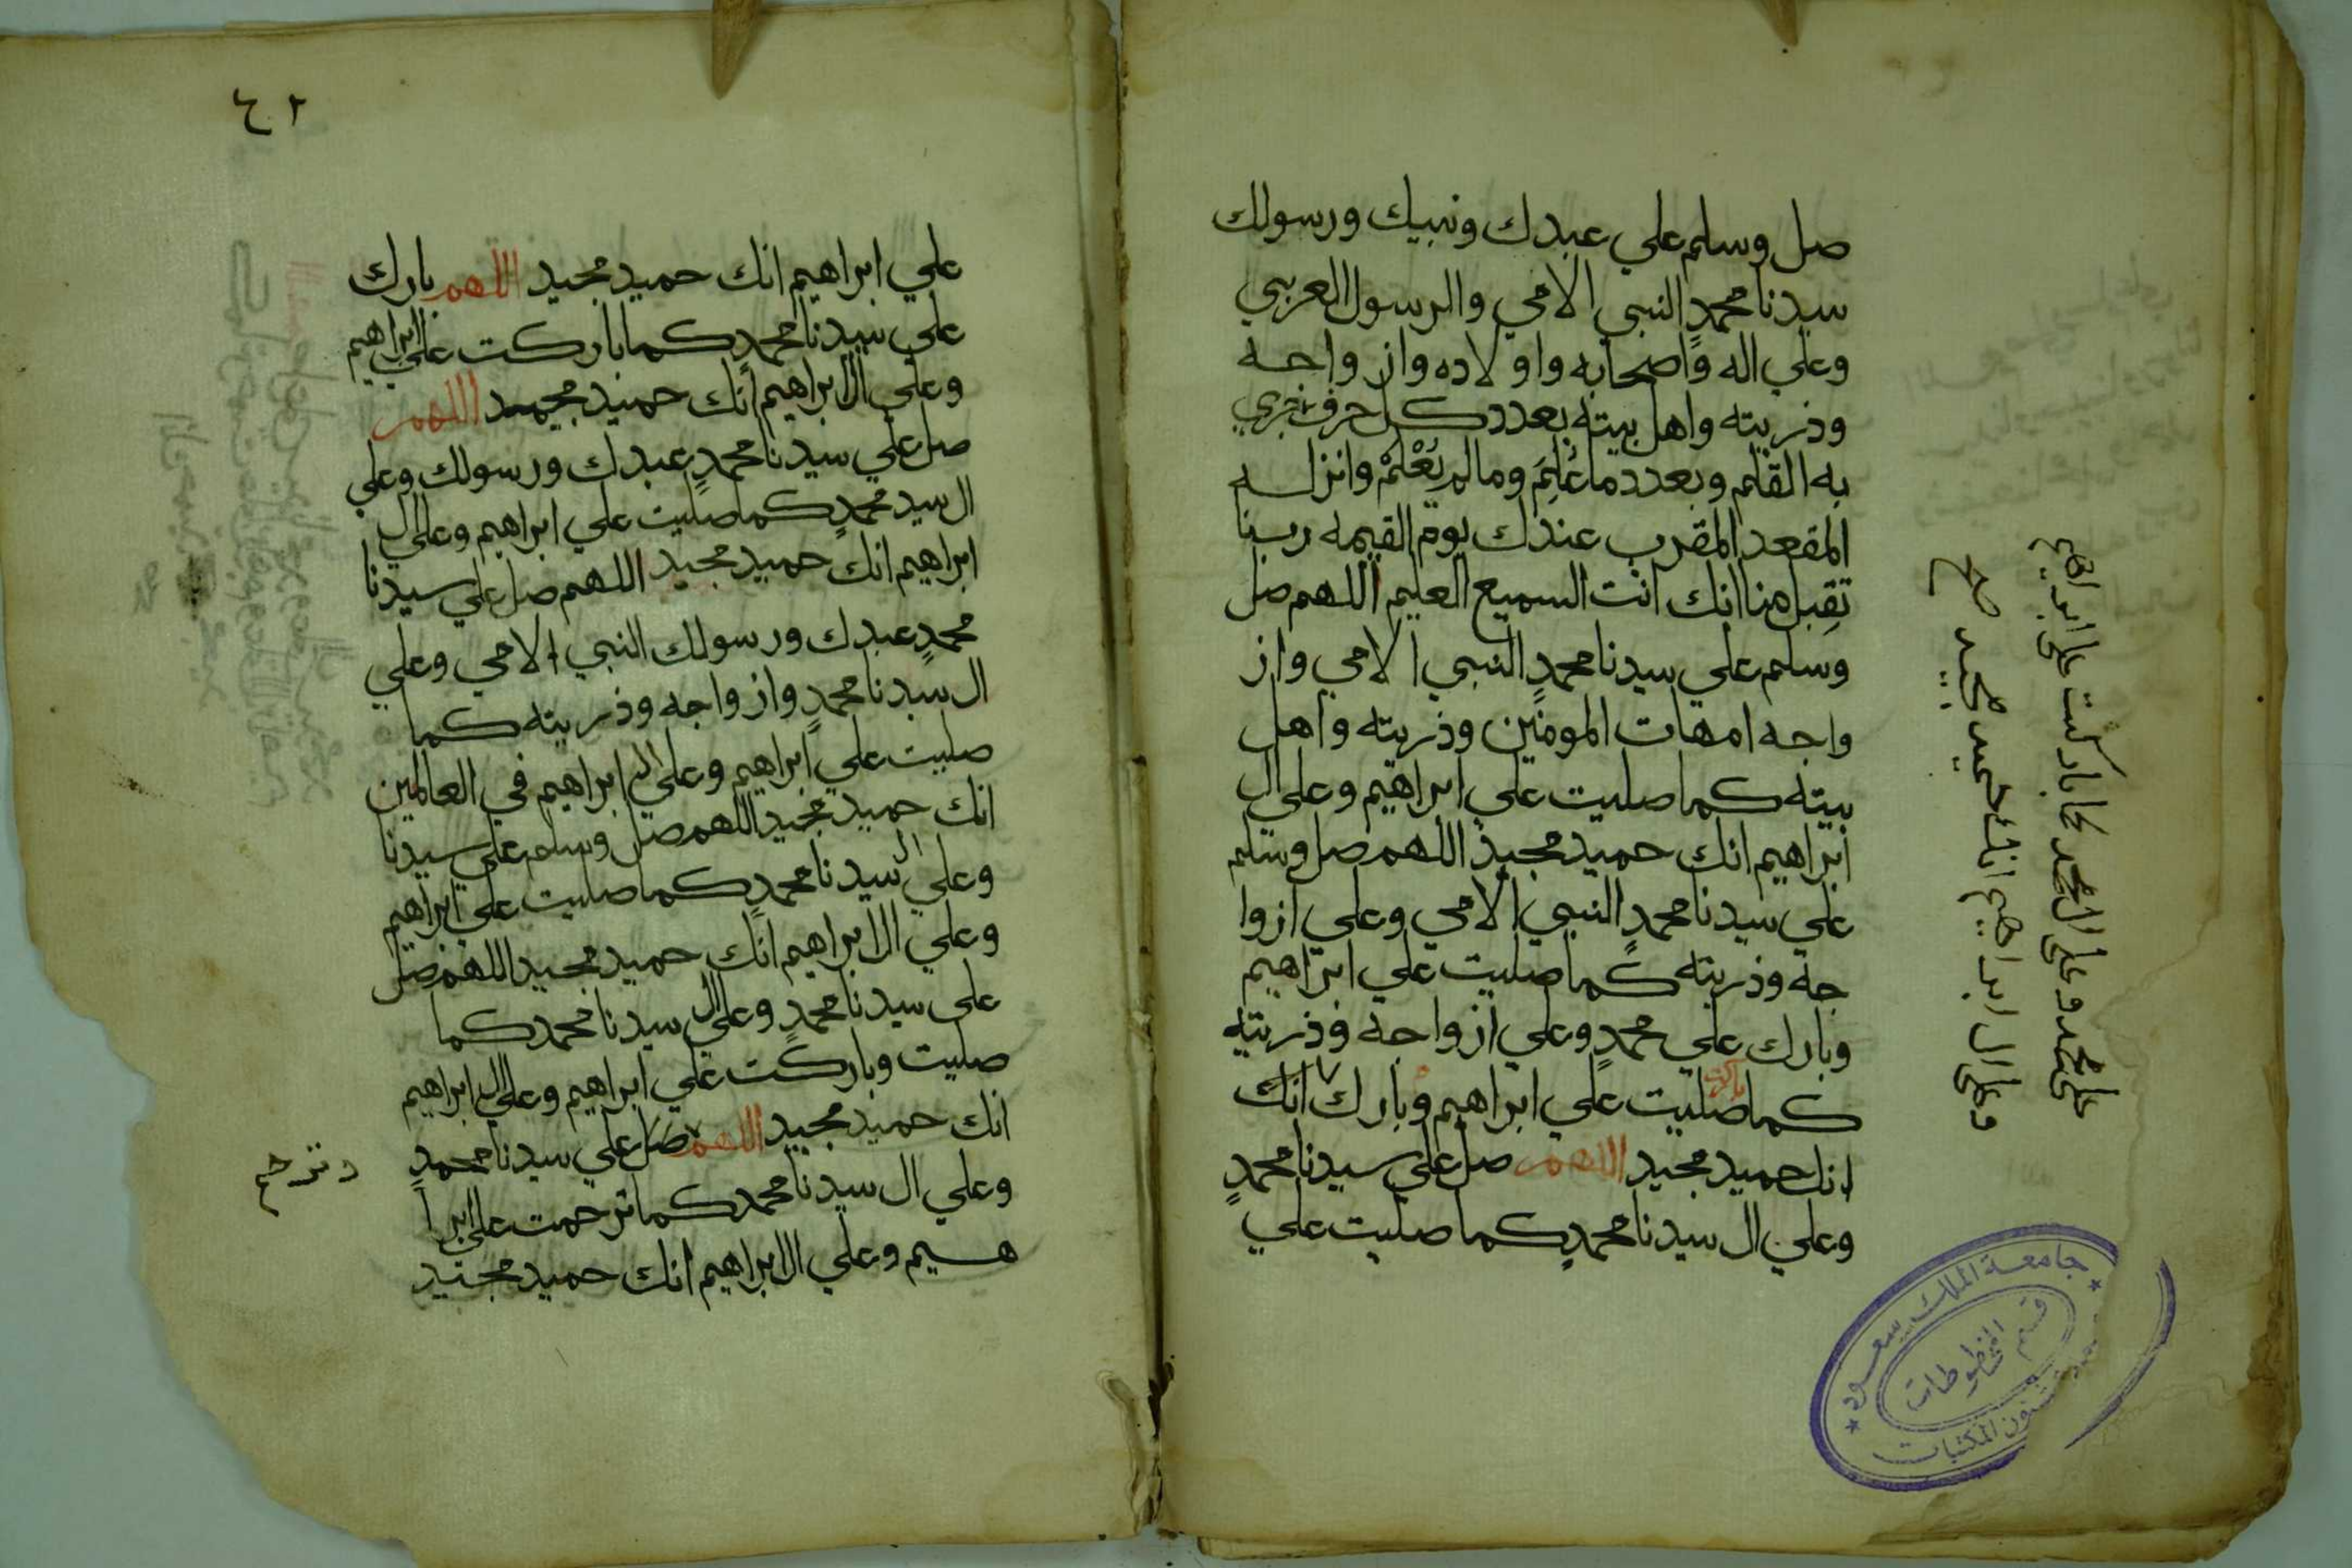 صل وسلم علي عبدك ونبيك ورسولك
سيدنا محمدٍ النبي الامي والرسول العربي
وعلي اله واصحابه واولاده وازواجه
وذريته واهل بيته بعدد كل حرف جري
به القلم وبعدد ما عُلِمَ وما لم يُعْلَمْ وانزله
المقعد المقرب عندك يوم القيمه ربنا
تقبل منا انك انت السميع العليم اللهم صل
وسلم علي سيدنا محمدٍ النبي الامي واز
واجه امهات المومنين وذريته واهل
بيته كما صليت علي ابراهيم وعلي ال
ابراهيم انك حميد مجيد اللهم صل وسلم
علي سيدنا محمدٍ النبي الامي وعلي ازوا
جه وذريته كما صليت علي ابراهيم
وبارك علي محمدٍ وعلي ازواجه وذريته
كما صليت علي ابراهيم وبارك انك
باركت
انك حميد مجيد اللهم صل علي سيدنا محمدٍ
وعلي ال سيدنا محمدٍ كما صليت علي
علي محمد وعلي ال محمد كما باركت علي ابراهيم
وعلي ال ابراهيم انك حميد مجيد صح
جامعة الملك سعود
قسم المخطوطات
شئون المكتبات
علي ابراهيم انك حميد مجيد اللهم بارك
علي سيدنا محمدٍ كما باركت علي ابراهيم
وعلي ال ابراهيم انك حميد مجيد اللهم
صل علي سيدنا محمدٍ عبدك ورسولك وعلي
ال سيد محمدٍ كما صليت علي ابراهيم وعلي ال
ابراهيم انك حميد مجيد اللهم صل علي سيدنا
محمدٍ عبدك ورسولك النبي الامي وعلي
ال سيدنا محمدٍ وازواجه وذريته كما
صليت علي ابراهيم وعلي ال ابراهيم في العالمين
انك حميد مجيد اللهم صل وسلم علي سيدنا
وعلي ال سيدنا محمدٍ كما صليت علي ابراهيم
وعلي ال ابراهيم انك حميد مجيد اللهم صل
علي سيدنا محمدٍ وعلي ال سيدنا محمد كما
صليت وباركت علي ابراهيم وعلي ال ابراهيم
انك حميد مجيد اللهم صل علي سيدنا محمدٍ
وعلي ال سيدنا محمد كما ترحمت علي ابرا
هيم وعلي ال ابراهيم انك حميد مجيد